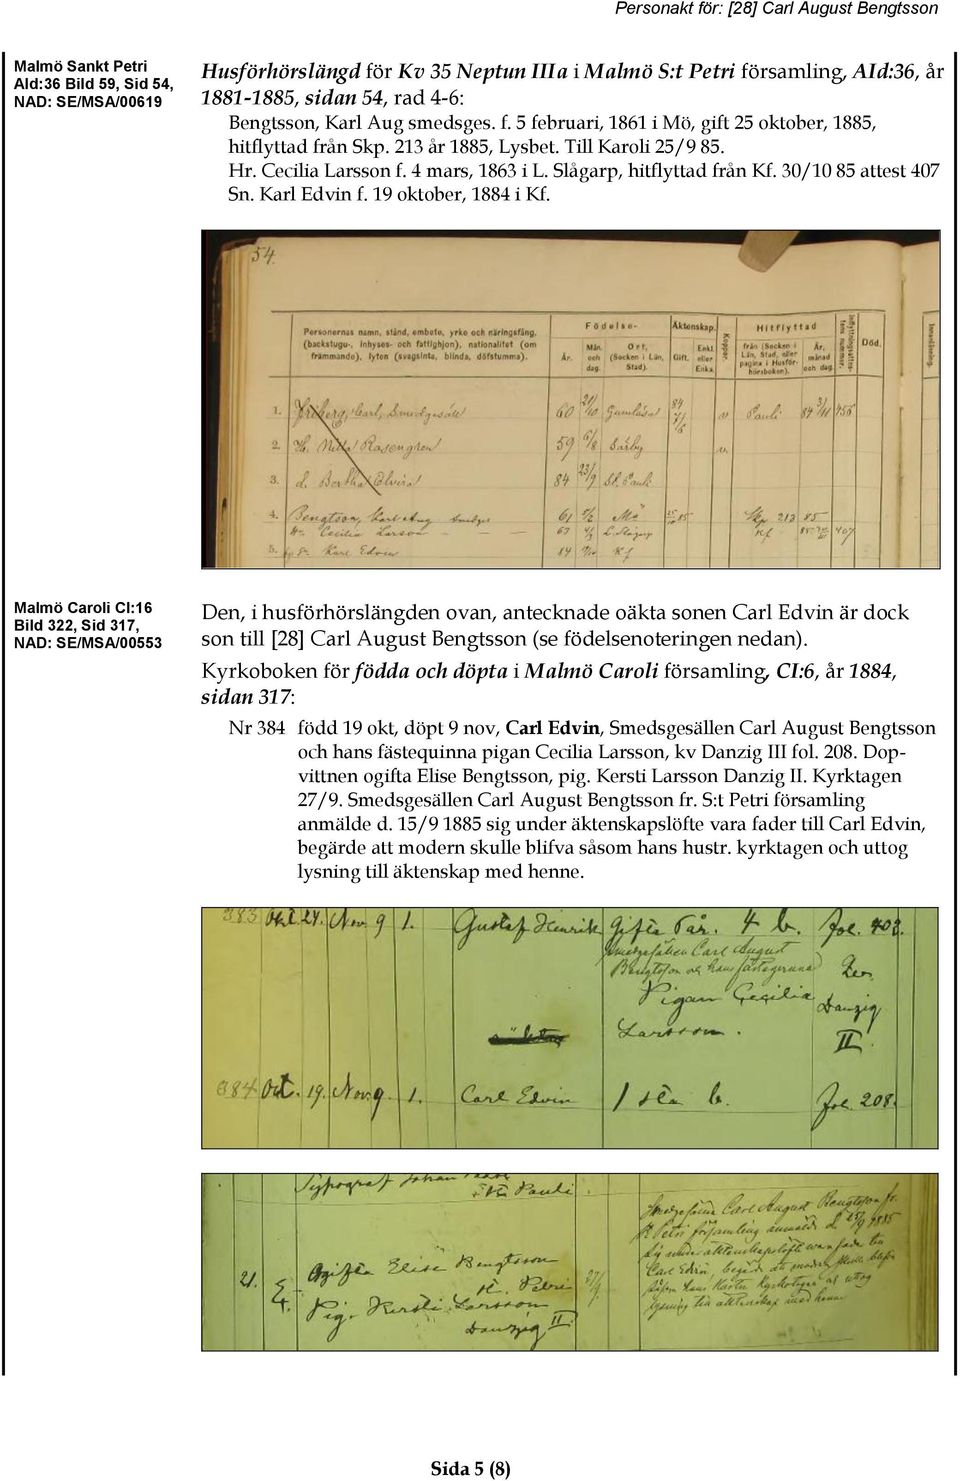 Personakt för: [28] Carl August Bengtsson
Malmö Sankt Petri
AId:36 Bild 59, Sid 54,
NAD: SE/MSA/00619
Husförhörslängd för Kv 35 Neptun IIIa i Malmö S:t Petri församling, AId:36, år
1881-1885, sidan 54, rad 4-6:
Bengtsson, Karl Aug smedsges. f. 5 februari, 1861 i Mö, gift 25 oktober, 1885,
hitflyttad från Skp. 213 år 1885, Lysbet. Till Karoli 25/9 85.
Hr. Cecilia Larsson f. 4 mars, 1863 i L. Slågarp, hitflyttad från Kf. 30/10 85 attest 407
Sn. Karl Edvin f. 19 oktober, 1884 i Kf.
54.
Personernas namn, stånd, embete, yrke och näringsfång,
(backstugu-, inhyses- och fattighjon), nationalitet (om
främmande), lyten (svagsinta, blinda, döfstumma).
Födelse-
År.
Mån.
och
dag.
Ort,
(Socken i Län,
Stad).
Äktenskap.
Gift.
Enkl.
eller
Enka.
Koppor.
Hitflyttad
från (Socken i
Län, Stad, eller
pagina i Husför-
hörsboken).
År,
månad
och dag.
Inflyttningsattes-
tens nummer.
Död.
1. Friberg, Carl, Smedgesäll 60 21/10 Gumlösa 84 7/6 v Pauli 84 3/11 456
2. H. Netta Rosengren 59 6/8 Särby v.
3. d. Bertha Elvira 84 23/9 St. Pauli
4. Bengtsson, Karl Aug Smedges 61 5/2 Mö 25/10 85 Skp 213 85
Hr. Cecilia Larsson 63 4/3 L. Slågarp Kf 85 30/10 407
5. Sn. Karl Edvin 84 19/10 Kf
Malmö Caroli CI:16
Bild 322, Sid 317,
NAD: SE/MSA/00553
Den, i husförhörslängden ovan, antecknade oäkta sonen Carl Edvin är dock
son till [28] Carl August Bengtsson (se födelsenoteringen nedan).
Kyrkoboken för födda och döpta i Malmö Caroli församling, CI:6, år 1884,
sidan 317:
Nr 384 född 19 okt, döpt 9 nov, Carl Edvin, Smedsgesällen Carl August Bengtsson
och hans fästequinna pigan Cecilia Larsson, kv Danzig III fol. 208. Dop-
vittnen ogifta Elise Bengtsson, pig. Kersti Larsson Danzig II. Kyrktagen
27/9. Smedsgesällen Carl August Bengtsson fr. S:t Petri församling
anmälde d. 15/9 1885 sig under äktenskapslöfte vara fader till Carl Edvin,
begärde att modern skulle blifva såsom hans hustr. kyrktagen och uttog
lysning till äktenskap med henne.
383 Okt. 24. Nov. 9 1. Gustaf Hinrik Gifta Får. 4 b. fol. 402.
smedgesällen Carl August
Bengtsson och hans fästequinna
Pigan Cecilia
Larsson.
Danzig
II
384 Oct. 19. Nov. 9. 1. Carl Edvin 1sta b. fol. 208.
Typograf Johan
St. Pauli
21.
Ogifta Elise Bengtsson
St. Petri
Pig. Kersti Larsson
Danzig II
27/9
Smedgesällen Carl August Bengtsson fr.
St Petri församling anmälde d. 15/9 1885
sig under äktenskapslöfte vara fader till
Carl Edvin, begärde att modern skulle blifva
såsom hans hustru kyrktagen och uttog
lysning till äktenskap med henne
Sida 5 (8)